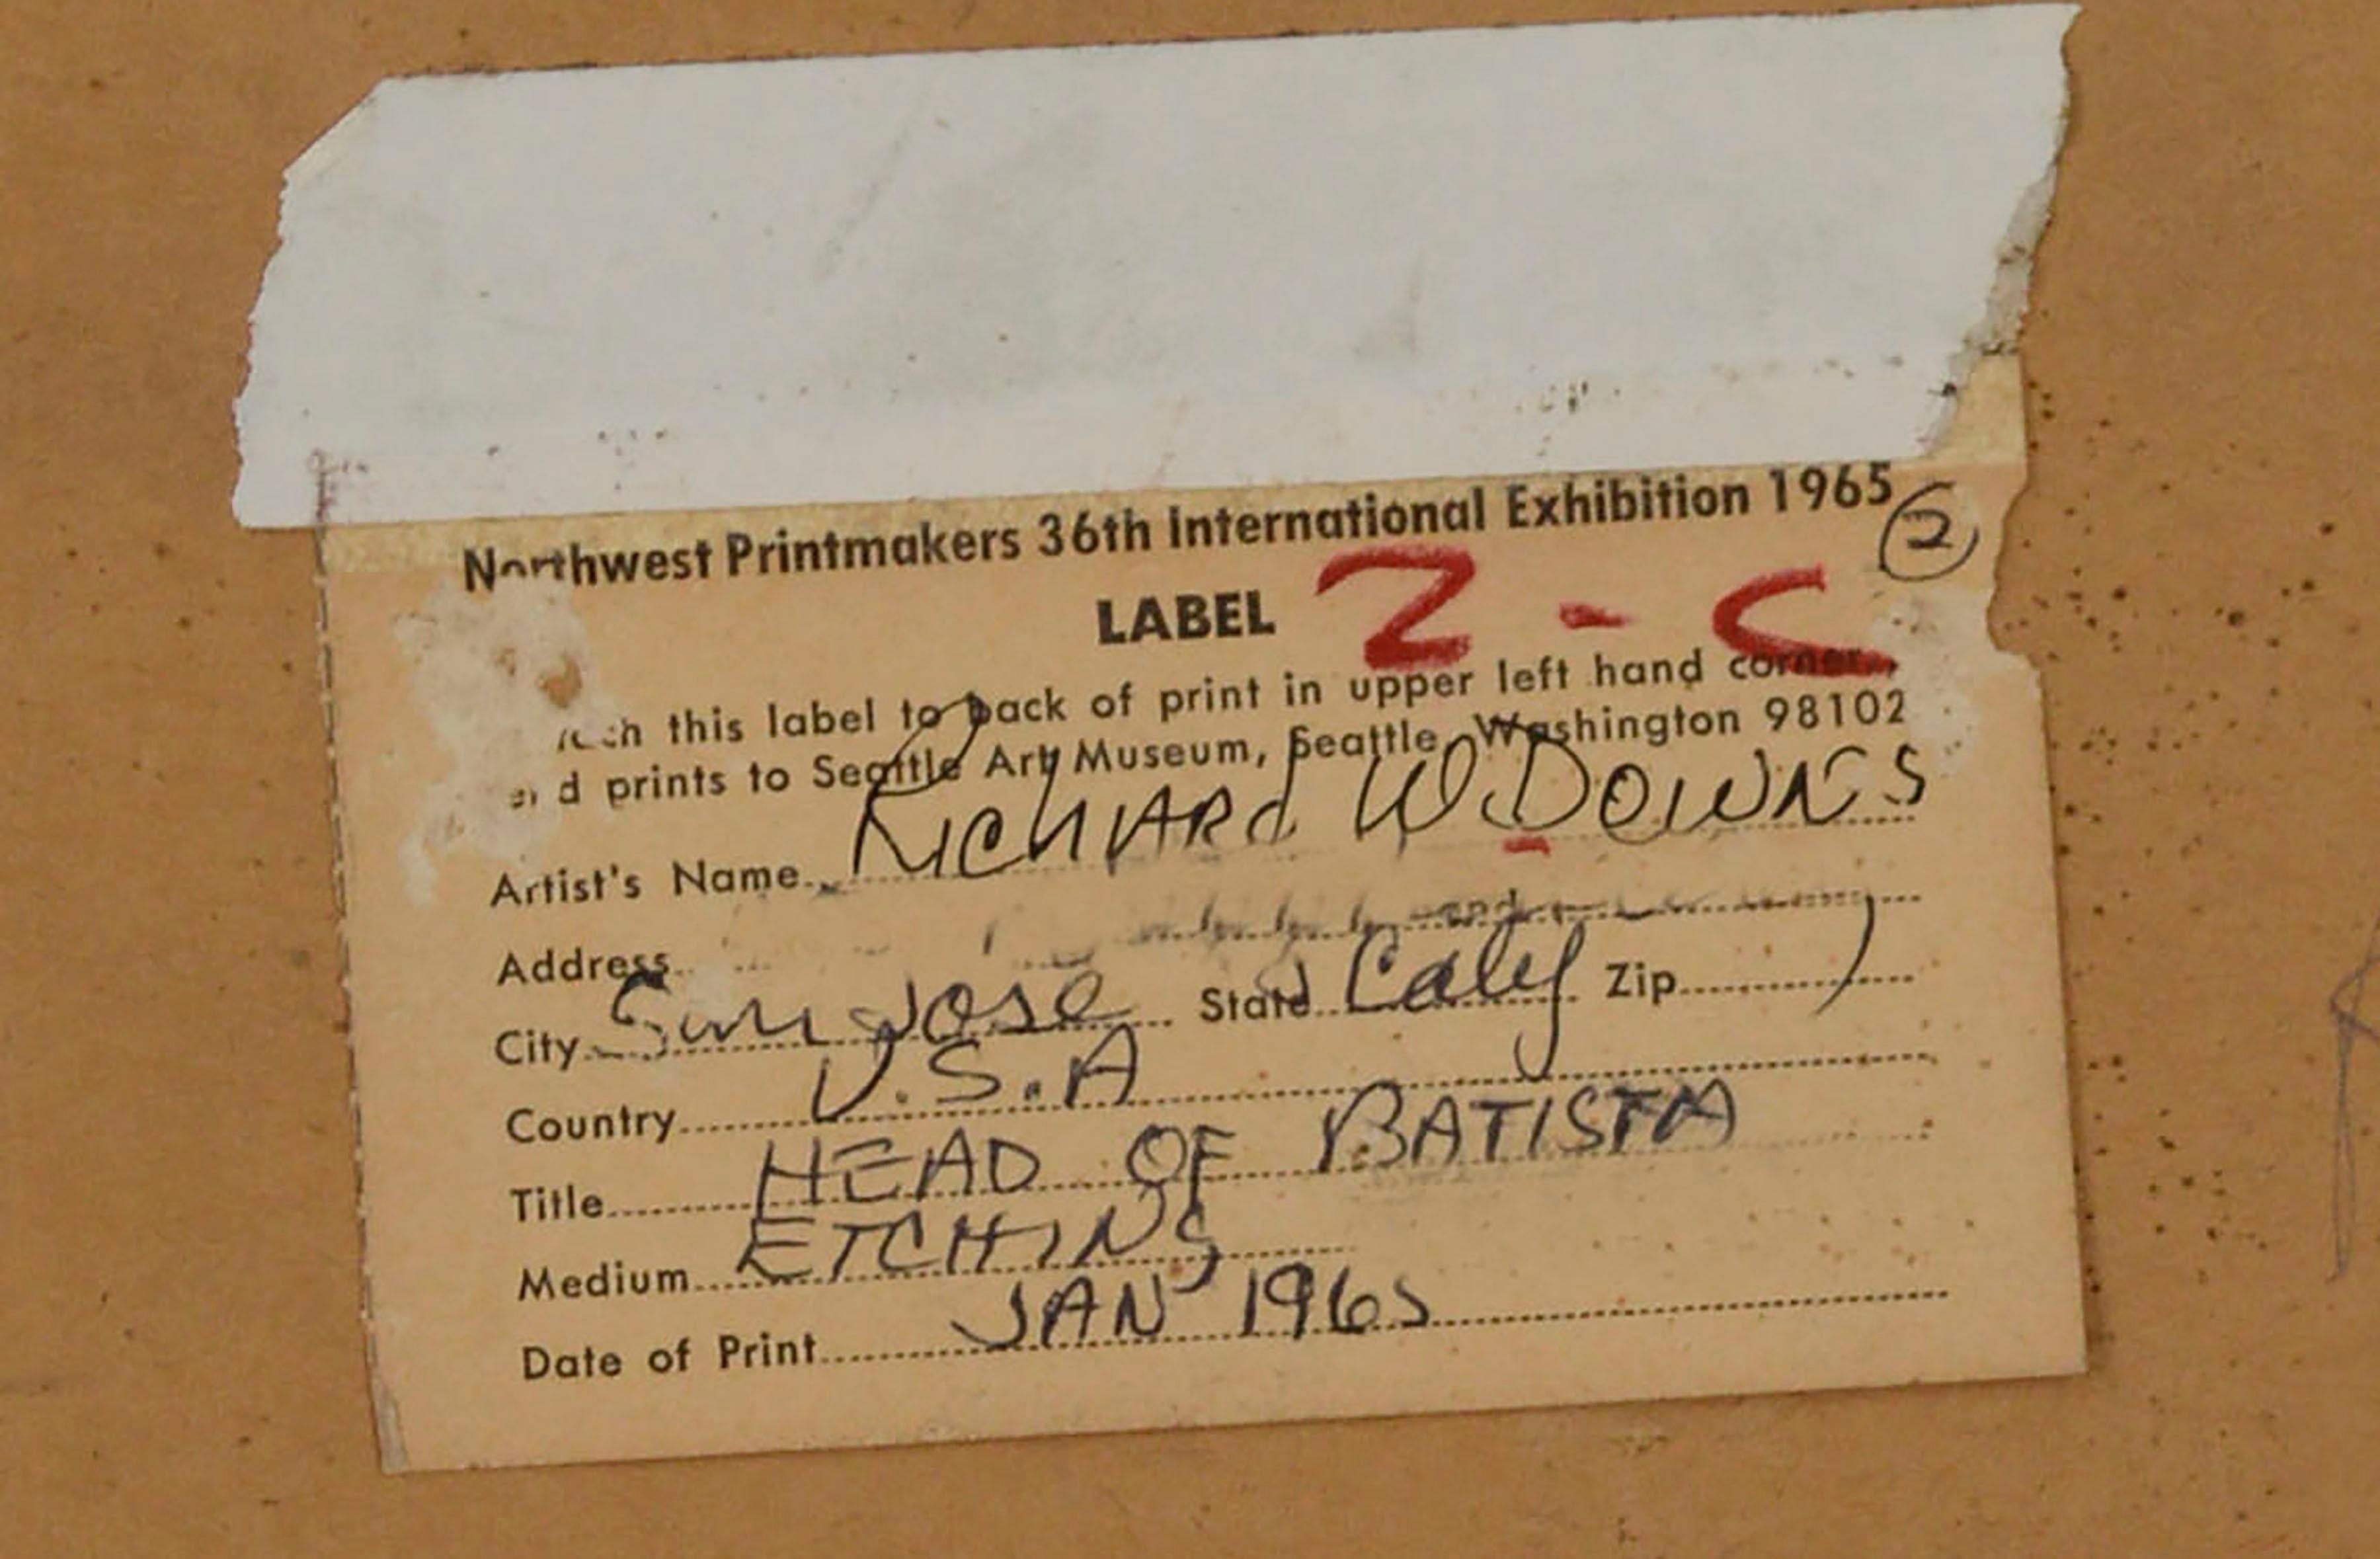 Northwest Printmakers 36th International Exhibition 1965
2
LABEL 2 - C
this label to back of print in upper left hand corner,
prints to Seattle Art Museum, Seattle, Washington 98102
Artist's Name RichARd W. DOWNS
Address
City San Jose State Calif Zip
Country U.S.A
Title HEAD OF BATISTA
Medium ETCHING
Date of Print JAN 1965